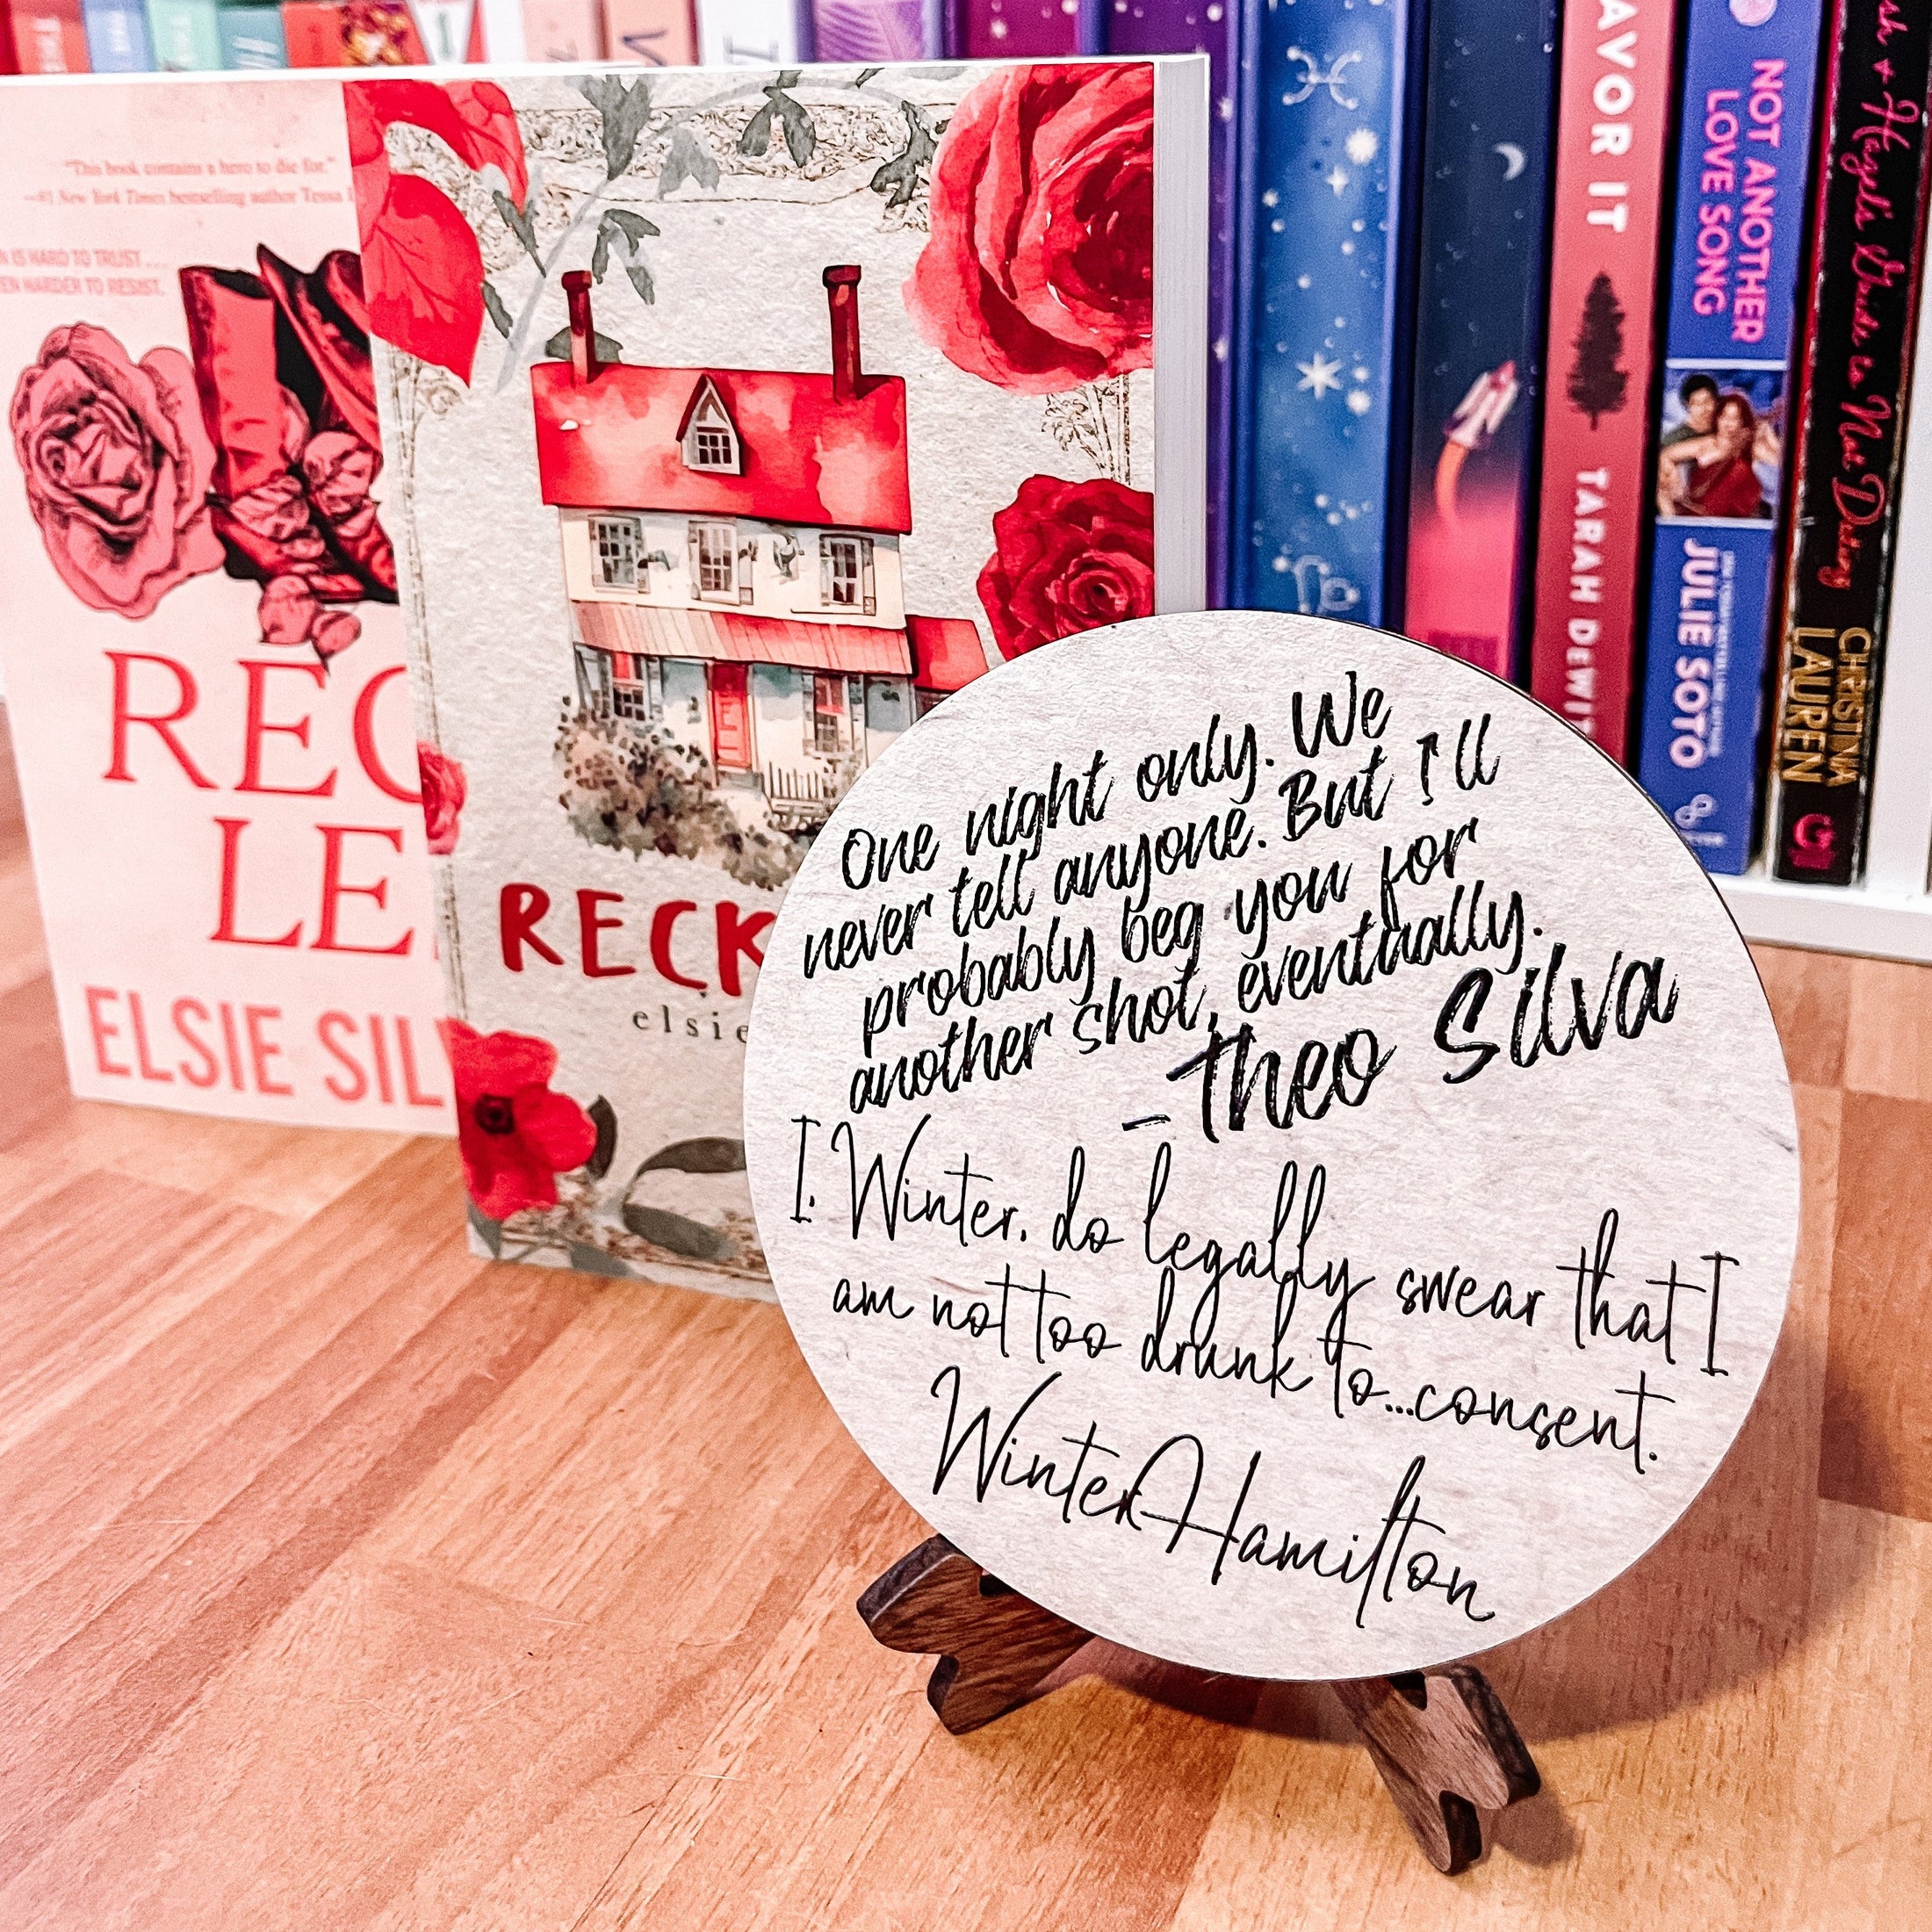 "This book contains a hero to die for."
—#1 New York Times bestselling author Tessa
IS HARD TO TRUST...
HARDER TO RESIST.
REC
LE
ELSIE SIL
RECK
elsie
One night only. We
never tell anyone. But I'll
probably beg you for
another shot, eventually.
– Theo Silva
I, Winter, do legally swear that I
am not too drunk to...consent.
Winter Hamilton
AVOR IT
TARAH DEWIT
NOT ANOTHER
LOVE SONG
JULIE SOTO
sh + Hazel's Guide to Not Dating
CHRISTINA
LAUREN